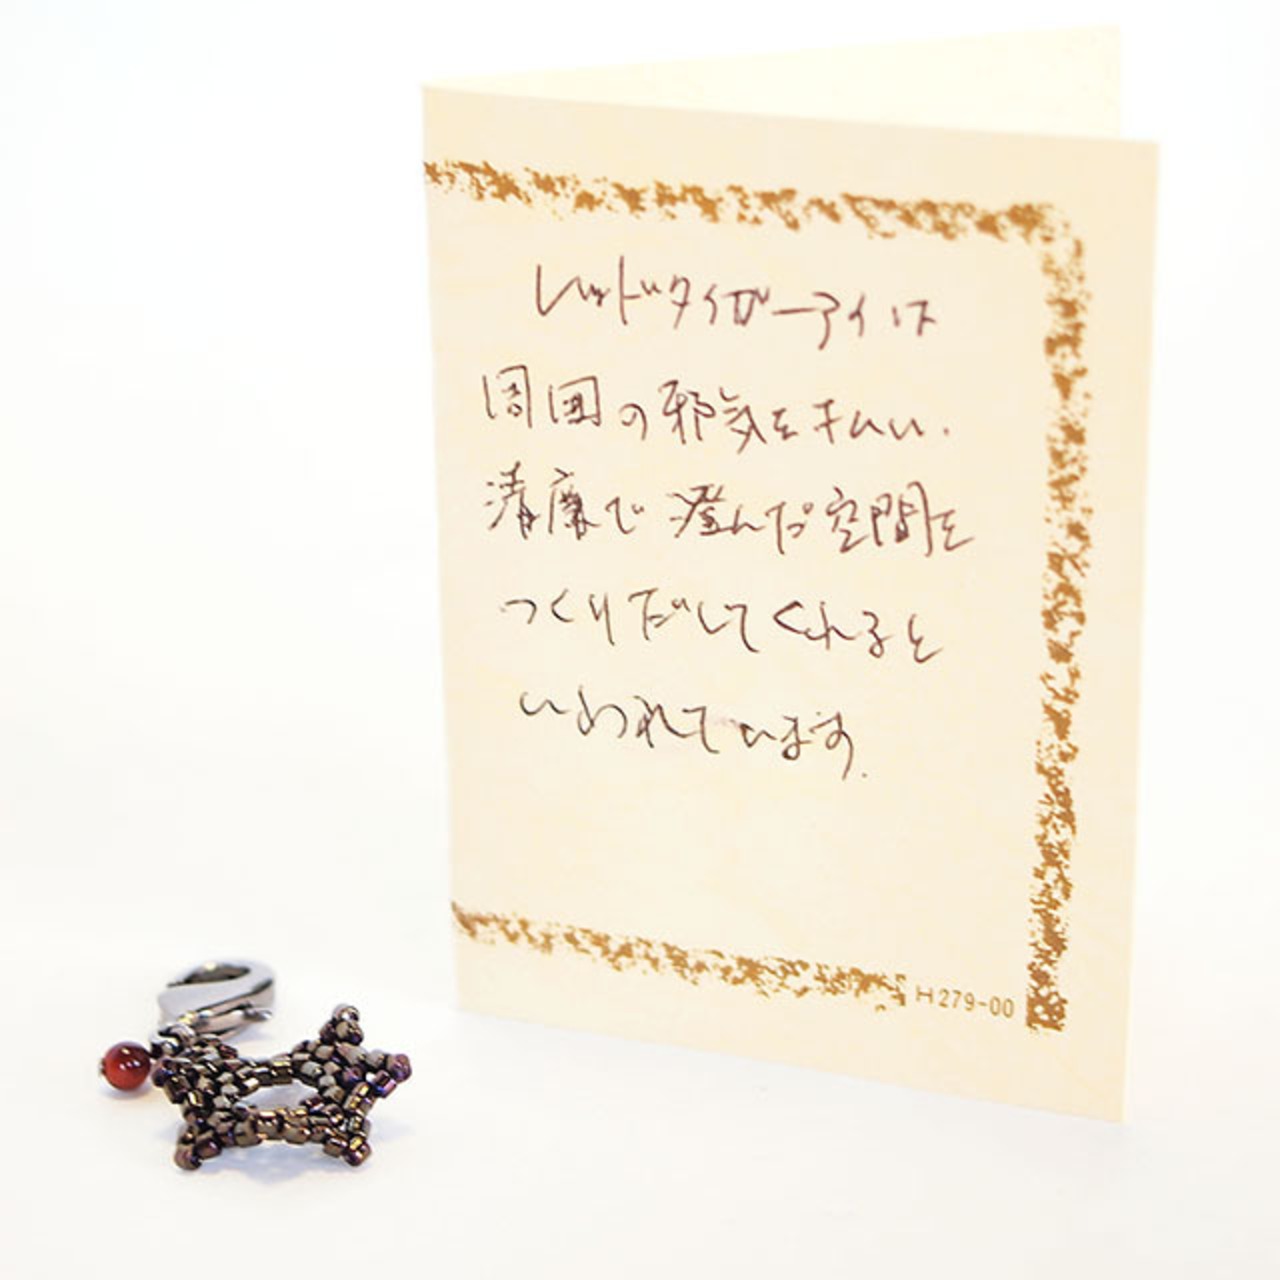 レッドタイガーアイは
周囲の邪気を払い、
清廉で澄んだ空間を
つくりだしてくれると
いわれています。
H279-00